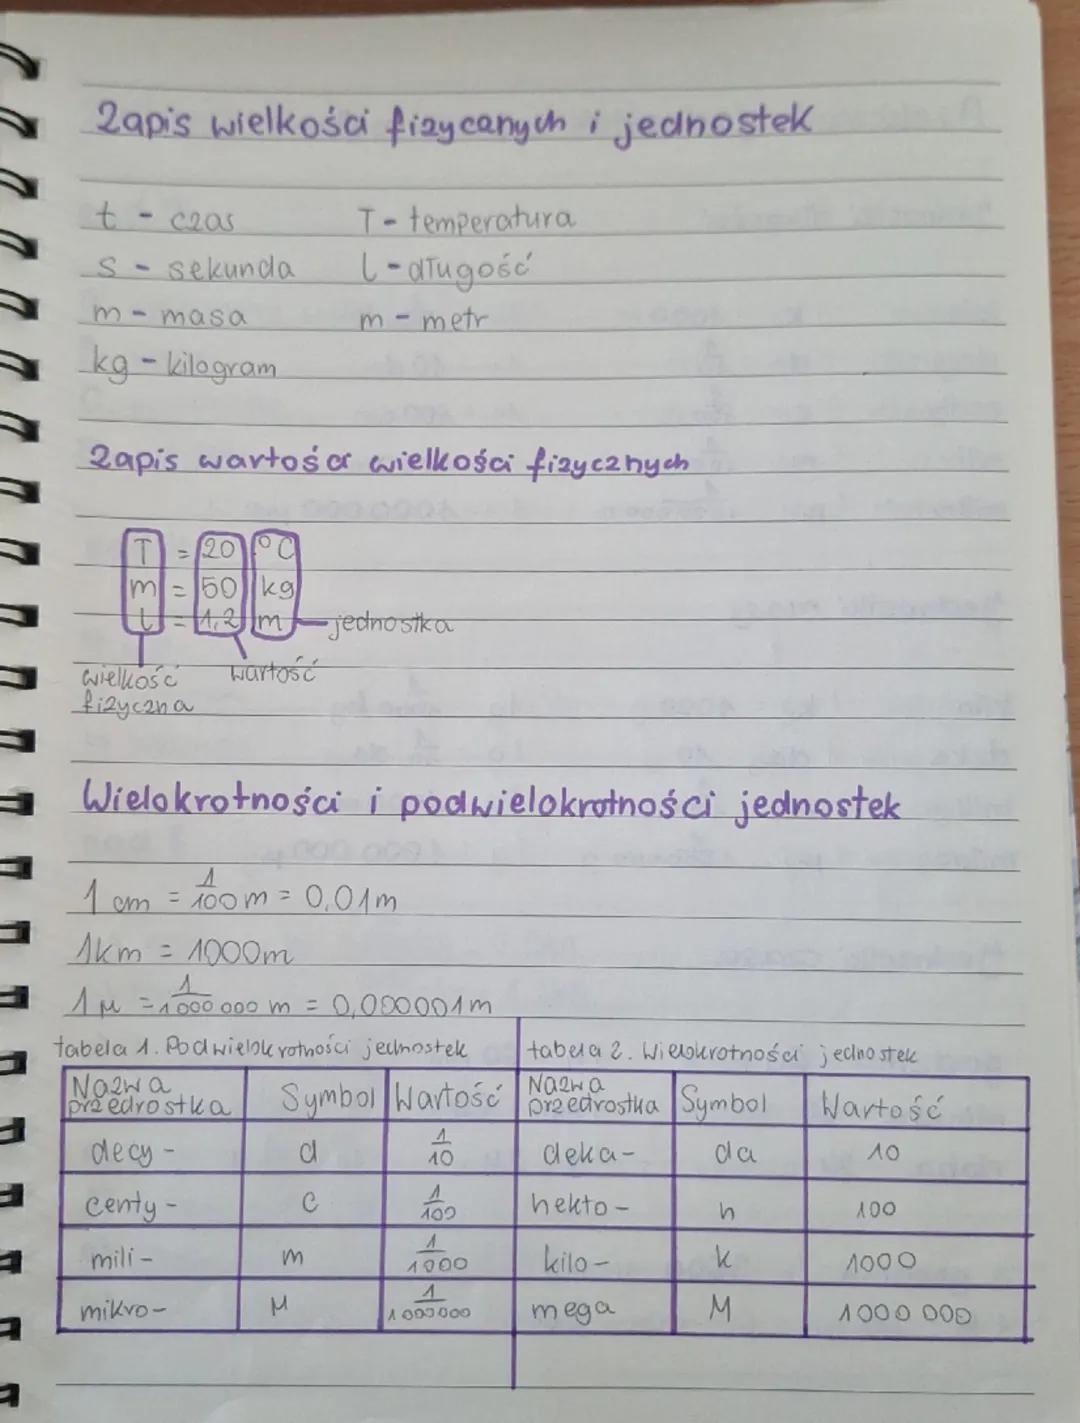 Zapis wielkości fizycznych i jednostek
t - czas T - temperatura
s - sekunda l - długość
m - masa m - metr
kg - kilogram
Zapis wartości wielkości fizycznych
T = 20 °C
m = 50 kg
l = 1,2 m jednostka
wielkość wartość
fizyczna
Wielokrotności i podwielokrotności jednostek
1 cm = 1/100 m = 0,01m
1km = 1000m
1 μ = 1/1000 000 m = 0,000001m
tabela 1. Podwielokrotności jednostek tabela 2. Wielokrotności jednostek
Nazwa przedrostka Symbol Wartość Nazwa przedrostka Symbol Wartość
decy- d 1/10 deka- da 10
centy- c 1/100 hekto- h 100
mili- m 1/1000 kilo- k 1000
mikro- μ 1/1000000 mega M 1000 000